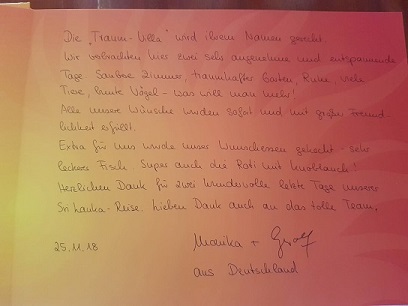 Die „Traum-Villa" wird ihrem Namen gerecht.
Wir verbrachten hier zwei sehr angenehme und entspannende
Tage. Saubere Zimmer, traumhafter Garten, Ruhe, viele
Tiere, bunte Vögel - was will man mehr!
Alle unsere Wünsche wurden sofort und mit großer Freund-
lichkeit erfüllt.
Extra für uns wurde unser Wunschessen gekocht - sehr
leckerer Fisch. Super auch die Roti mit Knoblauch!
Herzlichen Dank für zwei wundervolle letzte Tage unserer
Sri Lanka-Reise. Lieben Dank auch an das tolle Team,
25.11.18 Monika +
aus Deutschland